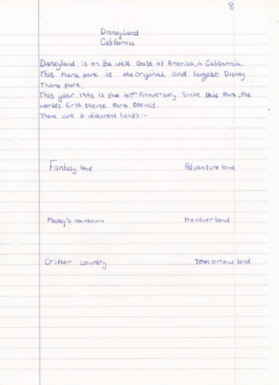 8
Disneyland
California
Disneyland is on the west coast of America, in California.
This theme park is the original and largest Disney
Theme park.
This year 1995 is the 40th Aniversary Since this Park, the
worlds first theme Park opened.
There are 6 different lands :-
Fantasy land Adventure land
Mickey's toontown Frontier land
Critter country Tomorrow land